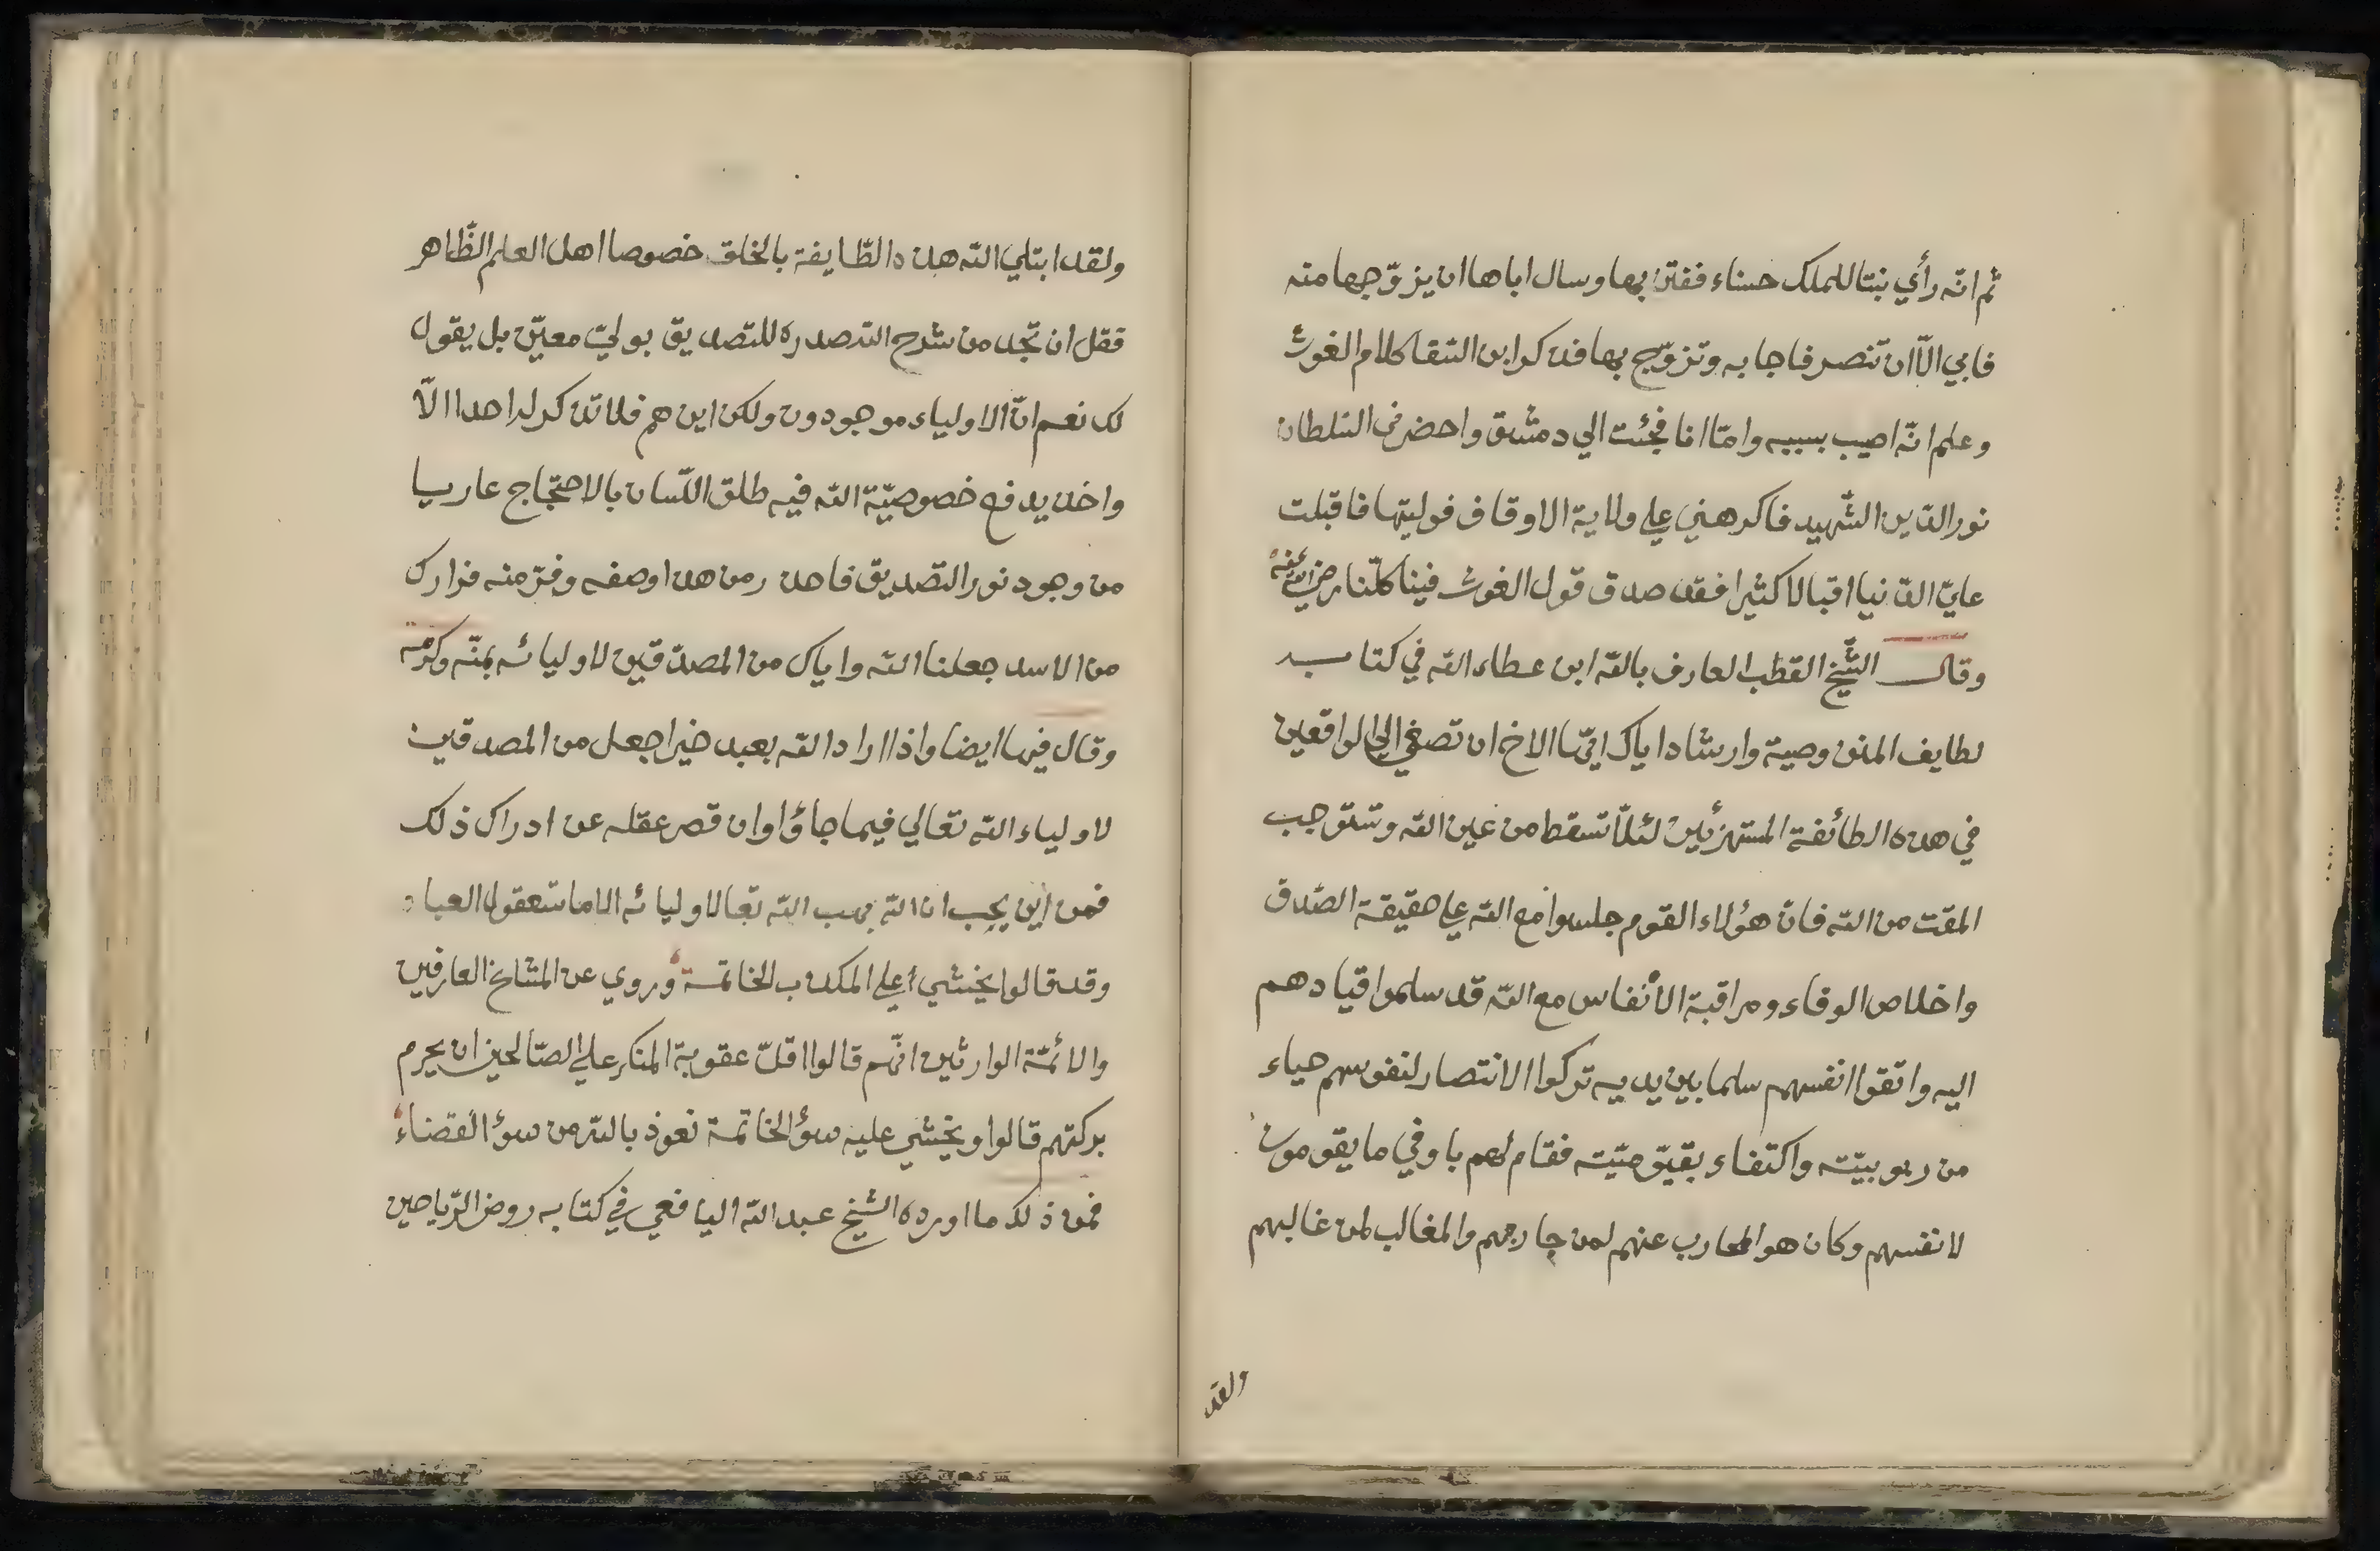 ثم انّه رأي بنتا للملك حسناء ففتن بها وسال اباها ان يزوّجها منه
فابي الّا ان تنصر فاجابه وتزوّج بها فذكر ابن السقا كلام الغوث
وعلم انّه اصيب بسببه وامّا انا فجئت الي دمشق واحضرني السلطان
نور الدّين الشّهيد فاكرهني علي ولاية الاوقاف فوليتها فاقبلت
عليّ الدّنيا اقبالا كثيرا فقد صدق قول الغوث فينا كلّنا رضي الله عنه
وقال الشّيخ القطب العارف بالله ابن عطاء الله في كتابه
لطايف المنن وصية وارشاد اياك ايّها الاخ ان تصغي الي الواقعين
في هذه الطائفة المستهزئين لئلّا تسقط من عين الله وتستوجب
المقت من الله فانّ هؤلاء القوم جلسوا مع الله علي حقيقة الصّدق
واخلاص الوفاء ومراقبة الأنفاس مع الله قد سلموا قيادهم
اليه واتقوا انفسهم سلما بين يديه تركوا الانتصار لنفوسهم حياء
من ربوبيّته واكتفاء بقيّوميّته فقام لهم باوفي ما يقومون
لانفسهم وكان هو المحارب عنهم لمن حاربهم والمغالب لمن غالبهم
ولقد
ولقد ابتلي الله هذه الطّايفة بالخلق خصوصا اهل العلم الظّاهر
فقل ان تجد من شرح الله صدره للتصديق بوليّ معيّن بل يقول
لك نعم انّ الاولياء موجودون ولكن اين هم فلا تذكر له احدا الّا
واخذ يدفع خصوصيّة الله فيه طلق اللّسان بالاحتجاج عاريا
من وجود نور التّصديق فاحذر من هذا وصفه وفرّ منه فرارك
من الاسد جعلنا الله واياك من المصدّقين لاوليائه بمنّه وكرمه
وقال فيها ايضا واذا اراد الله بعبد خيرا جعل من المصدقين
لاولياء الله تعالي فيما جاؤا وان قصر عقله عن ادراك ذلك
فمن أين يجب ان الله يهب الله تعالا وليائه الا ما تسعه عقول العباد
وقد قالوا يخشي علي المكذب الخاتمة وروي عن المشايخ العارفين
والائمّة الوارثين انّهم قالوا اقلّ عقوبة المنكر علي الصّالحين ان يحرم
بركتهم قالوا ويخشي عليه سوؤ الخاتمة نعوذ بالله من سوؤ القضاء
فمن ذلك ما اورده الشيخ عبد الله اليافعي في كتابه روض الرّياحين